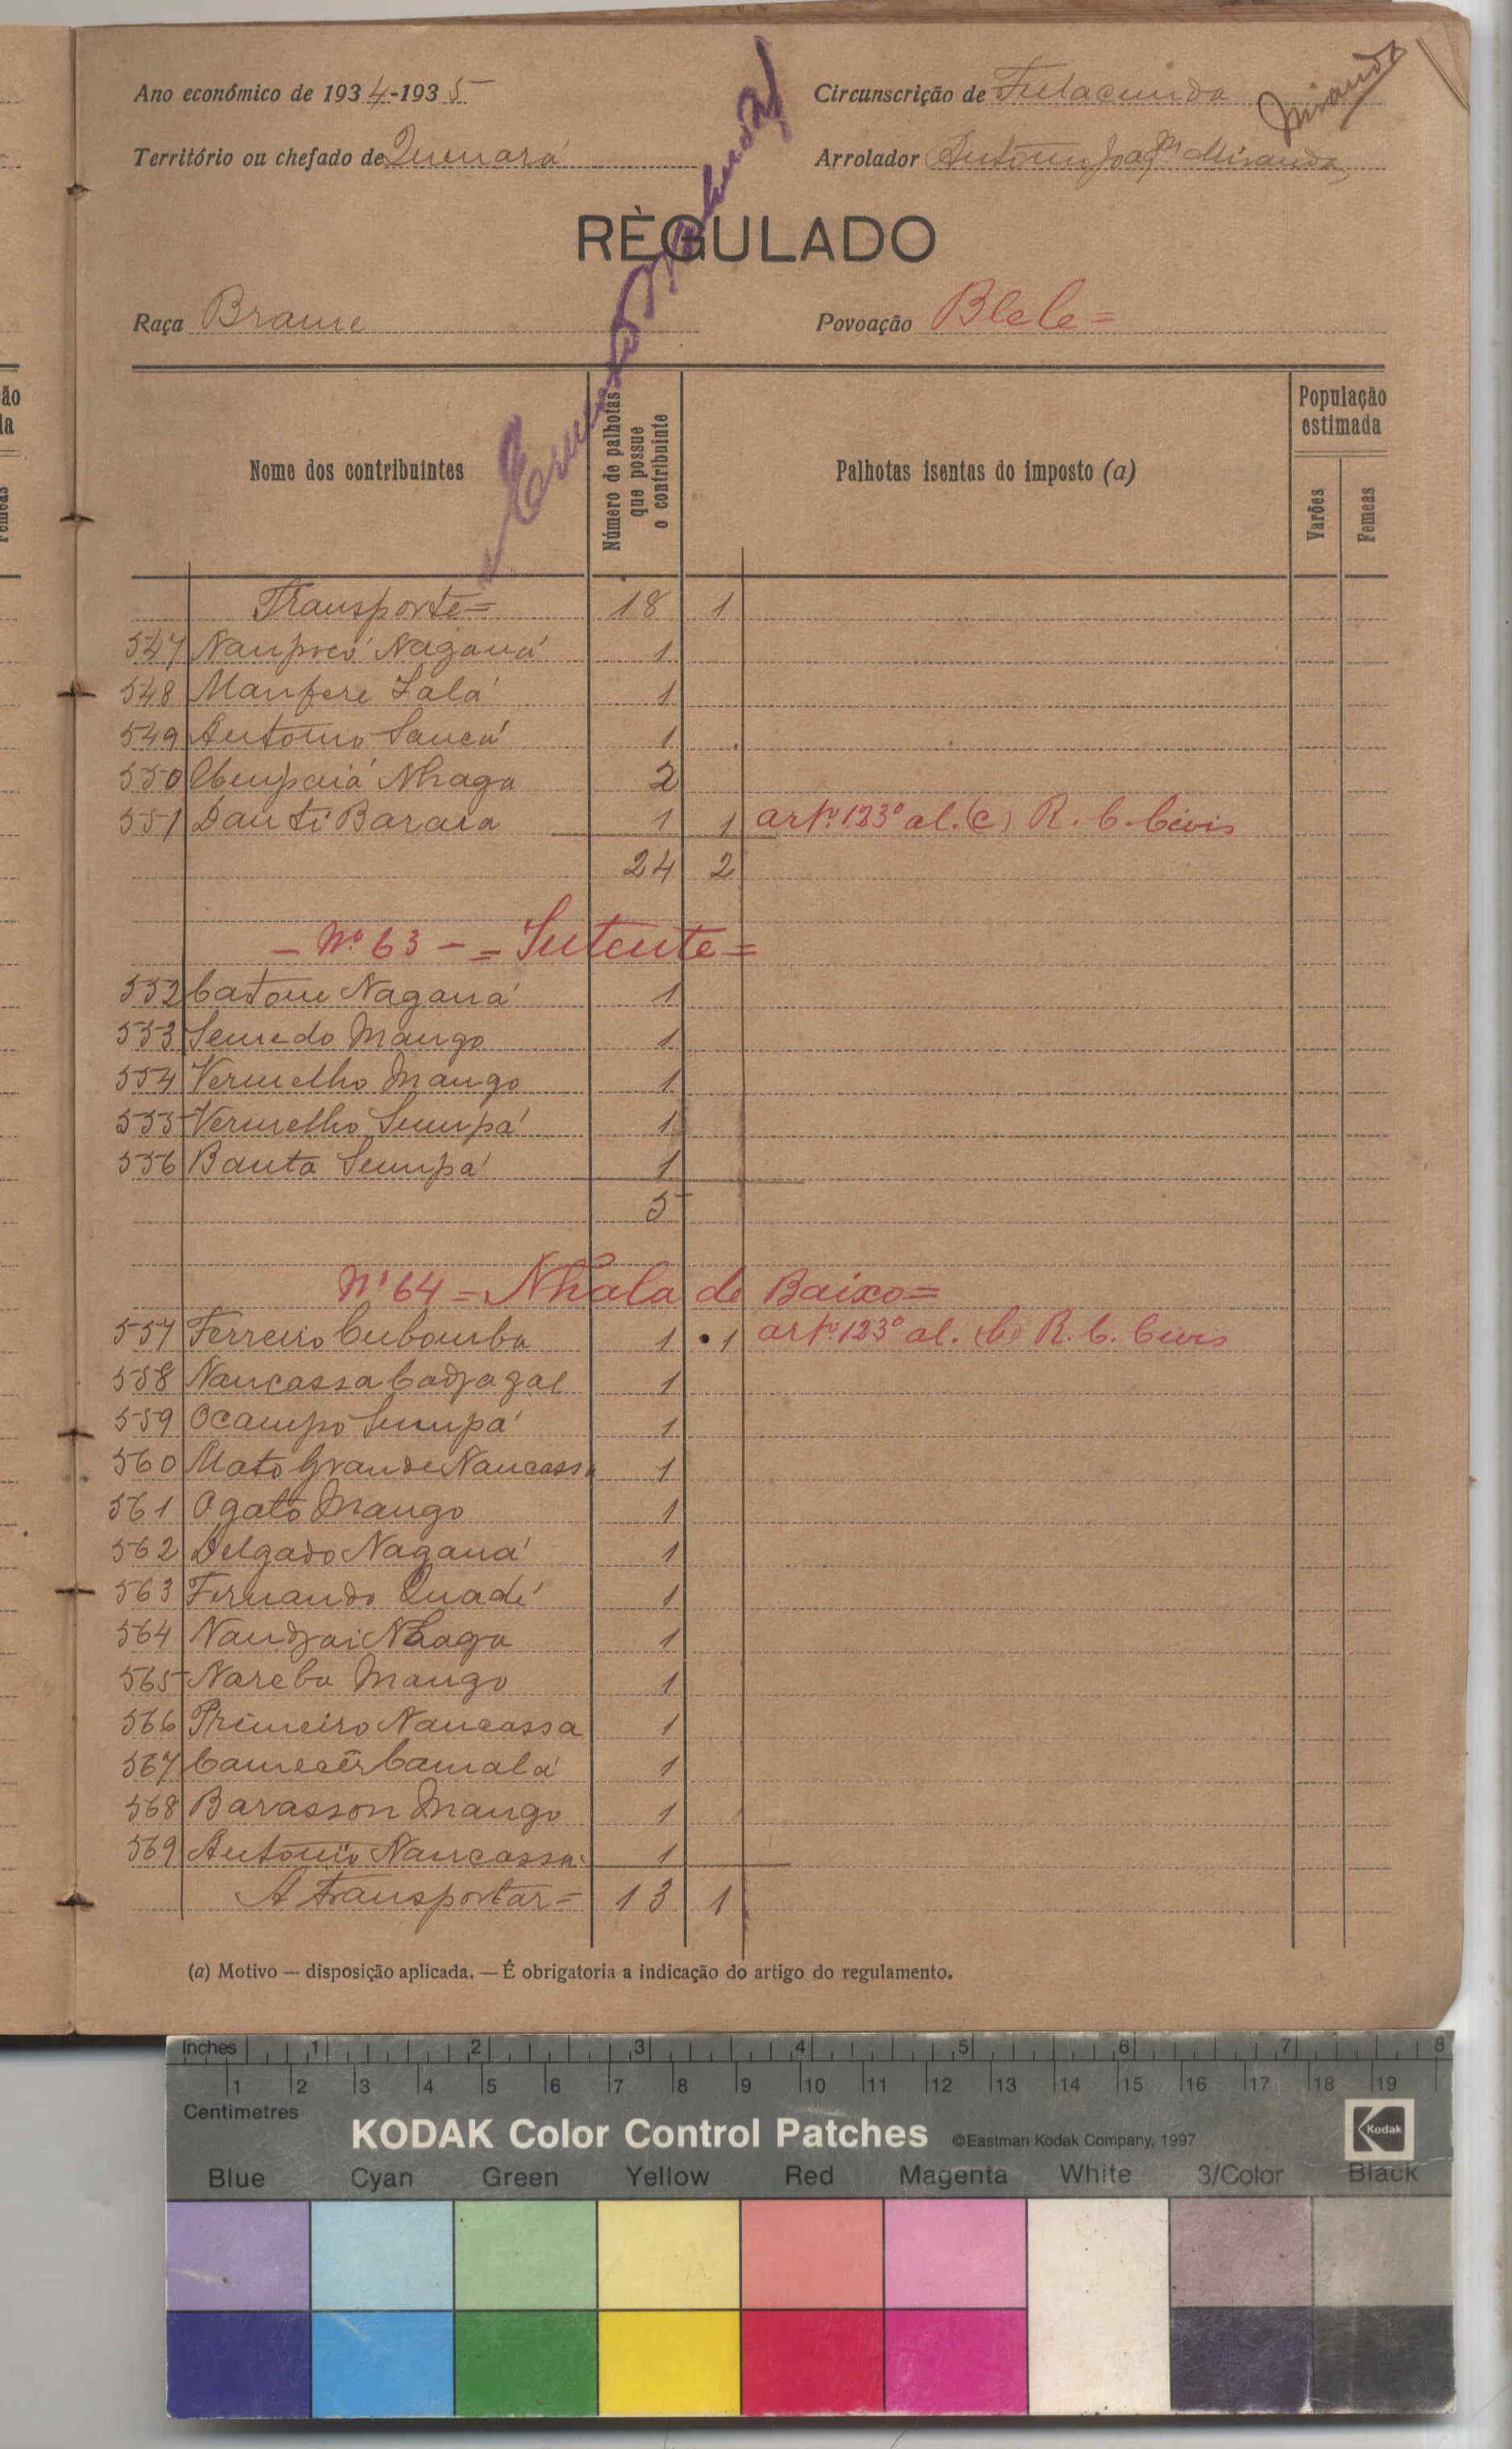 Ano económico de 1934-1935
Circunscrição de Fulacunda
Miranda
Território ou chefado de Quinará
Arrolador António Joaqm Miranda
RÈGULADO
Raça Brame
Povoação Blele=
Nome dos contribuintes
Número de palhotas que possue o contribuinte
Palhotas isentas do imposto (a)
População estimada
Varões
Femeas
Transporte= 18 1
547 Naganá 1
548 Lalá 1
549 António Sancá 1
550 Nhaga 2
551 Danti Baraia 1 1 artº 123º al. (c) R. C. Civis
24 2
- Nº 63 - = Sutente=
552 Catone Naganá 1
553 Semedo Mango 1
554 Vermelho Mango 1
555 Vermelho Sumpá 1
556 Banta Sumpá 1
5
Nº 64 = Nhala de Baixo=
557 Ferreiro Cubomba 1 1 artº 123º al. (b) R. C. Civis
558 Nancassa Cadjagal 1
559 Ocampo Sumpá 1
560 Mato Grande Nancassa 1
561 Ogato Mango 1
562 Delgado Naganá 1
563 Fernando Quadé 1
564 Nandjai Nhaga 1
565 Nareba Mango 1
566 Primeiro Nancassa 1
567 Camalá 1
568 Barasson Mango 1
569 António Nancassa 1
A transportar= 13 1
(a) Motivo — disposição aplicada. — É obrigatoria a indicação do artigo do regulamento.
Inches 1 2 3 4 5 6 7 8
1 2 3 4 5 6 7 8 9 10 11 12 13 14 15 16 17 18 19
Centimetres
KODAK Color Control Patches ©Eastman Kodak Company, 1997 Kodak
Blue Cyan Green Yellow Red Magenta White 3/Color Black